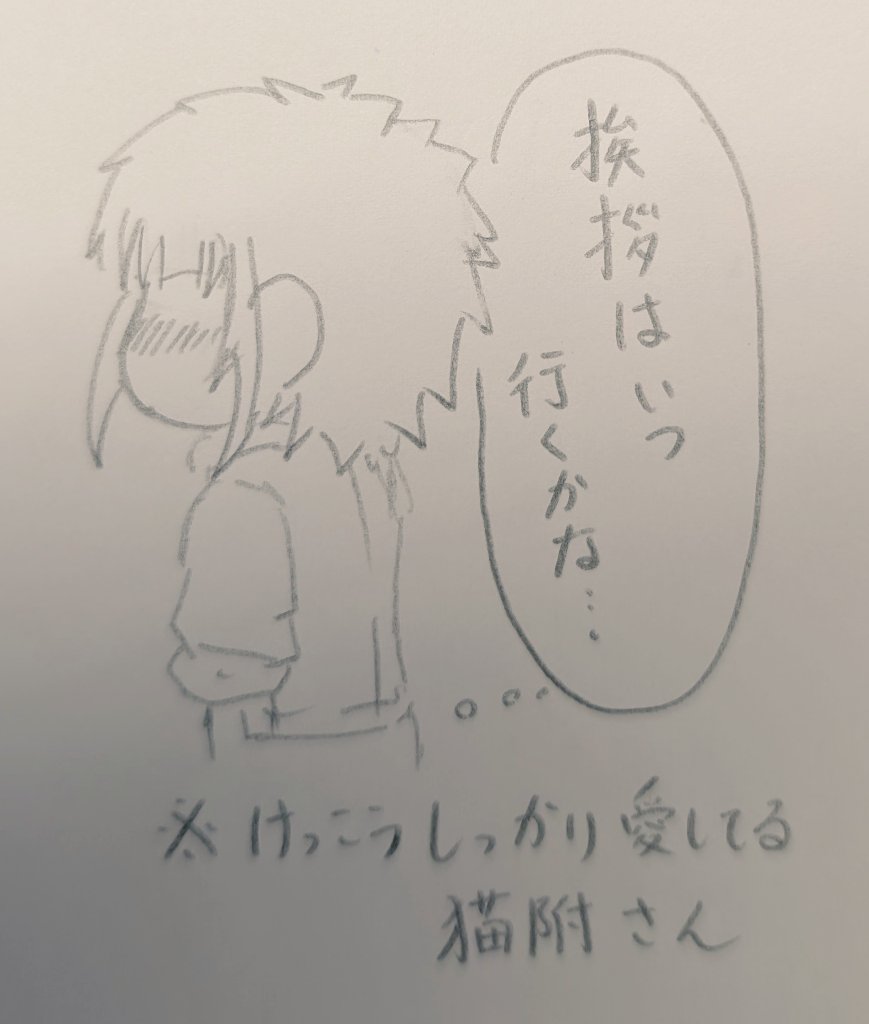 挨拶はいつ
行くかな…
※けっこうしっかり愛してる
猫附さん